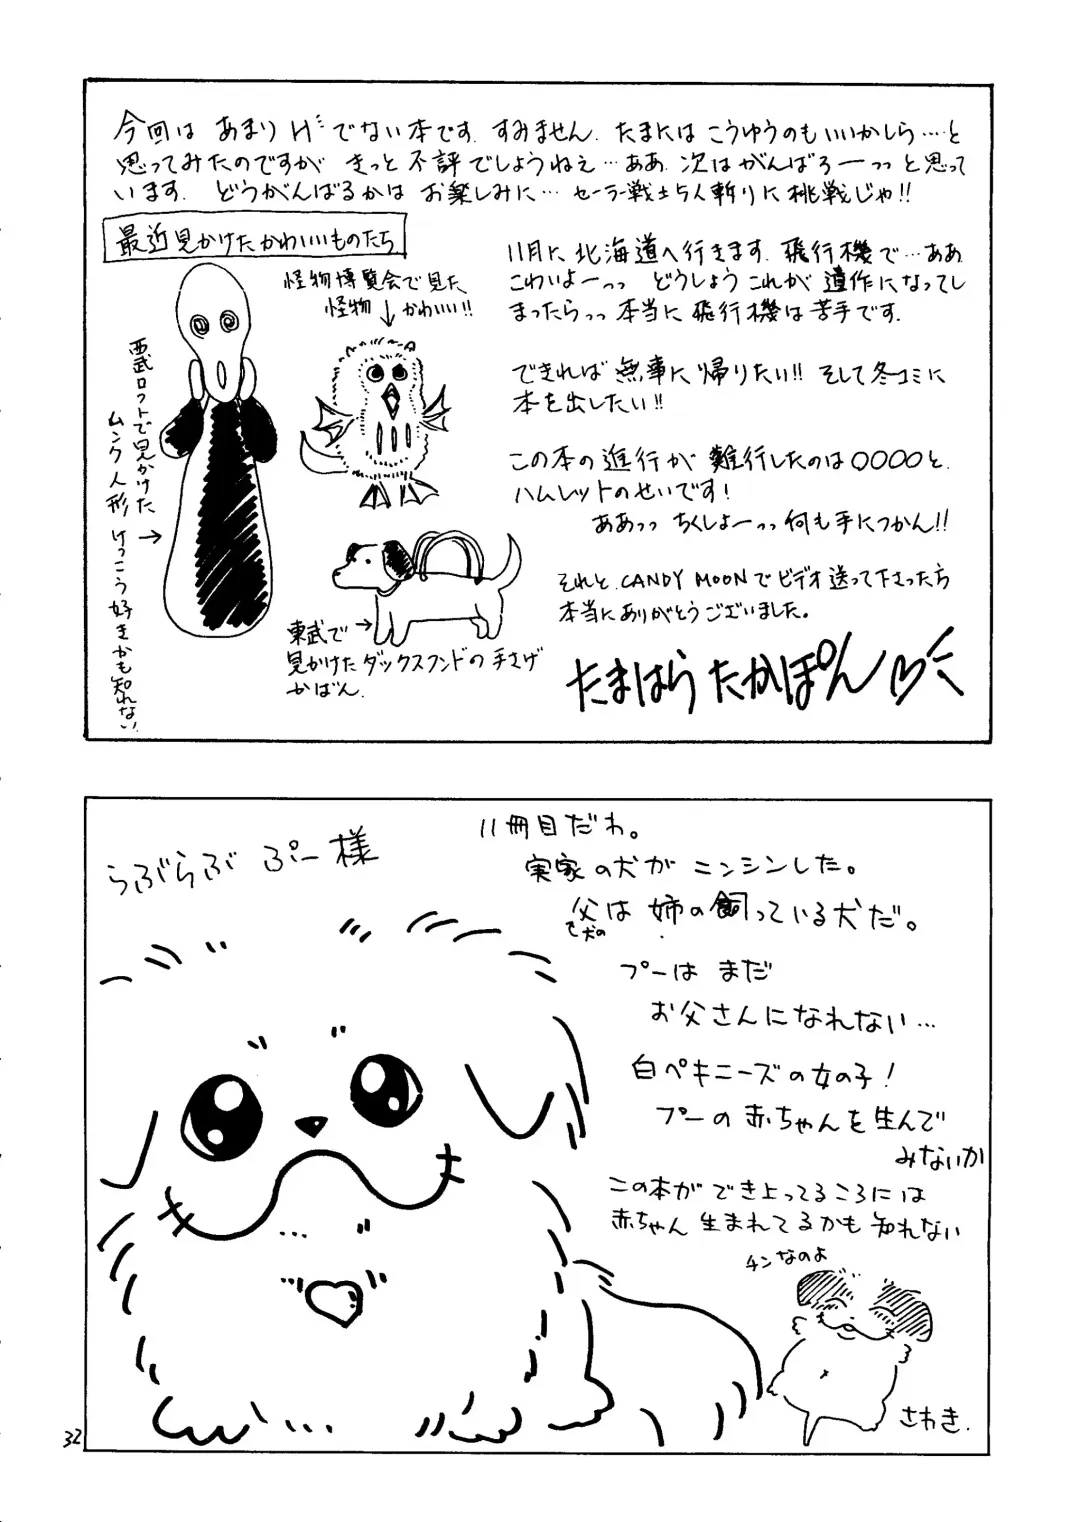 今回は あまり Hでない本です。すみません。たまには こうゆうのも いいかしら…と
思ってみたのですが きっと 不評でしょうねえ…ああ、次は がんばろーっっと思って
います。 どうがんばるかは お楽しみに… セーラー戦士5人斬りに挑戦じゃ!!
最近見かけたかわいいものたち
怪物博覧会で見た
怪物 ↓かわいい!!
西武ロフトで見かけた
ムンク人形 けっこう好きかも知れない
東武で
見かけた ダックスフンドの手さげ
かばん.
11月に 北海道へ行きます。飛行機で…ああ
こわいよーっっ どうしよう これが 遺作になってし
まったらっっ 本当に 飛行機は苦手です.
できれば 無事に 帰りたい!! そして冬コミに
本を出したい!!
この本の進行が 難行したのは〇〇〇〇と、
ハムレットのせいです!
ああっっ ちくしょーっっ何も手につかん!!
それと、CANDY MOONでビデオ送って下さった方
本当にありがとうございました。
たまはら たかぽん♡
らぶらぶ ぷー様
11冊目だわ。
実家の犬が ニンシンした。
父は 姉の飼っている犬だ。
プーは まだ
お父さんになれない…
白ペキニーズの女の子!
プーの赤ちゃんを生んで
みないか
この本が でき上ってるころには
赤ちゃん 生まれてるかも 知れない
チンなのよ
さわき.
32